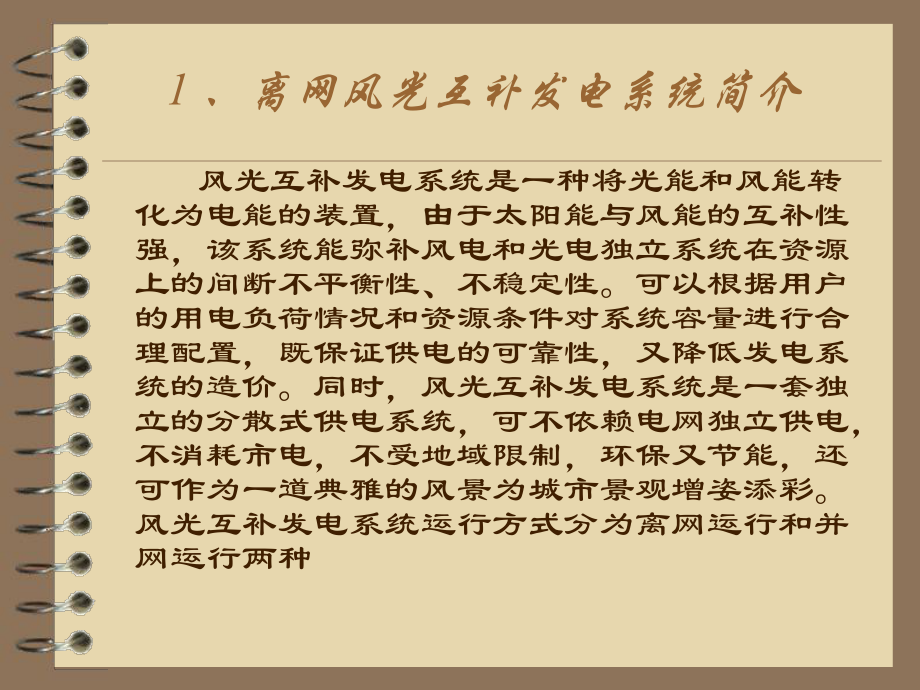 1、离网风光互补发电系统简介
风光互补发电系统是一种将光能和风能转
化为电能的装置，由于太阳能与风能的互补性
强，该系统能弥补风电和光电独立系统在资源
上的间断不平衡性、不稳定性。可以根据用户
的用电负荷情况和资源条件对系统容量进行合
理配置，既保证供电的可靠性，又降低发电系
统的造价。同时，风光互补发电系统是一套独
立的分散式供电系统，可不依赖电网独立供电，
不消耗市电，不受地域限制，环保又节能，还
可作为一道典雅的风景为城市景观增姿添彩。
风光互补发电系统运行方式分为离网运行和并
网运行两种